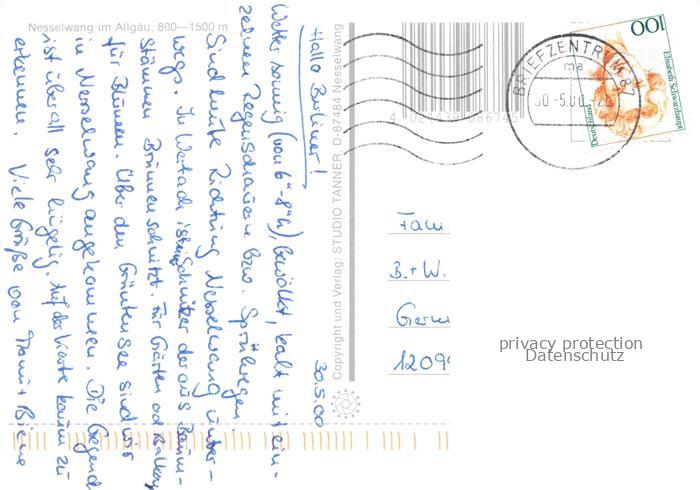 Nesselwang im Allgäu, 800—1500 m
30.5.00
Hallo Berliner!
Wetter sonnig (von 6°-8°h), bewölkt, kalt mit ein-
zelnen Regenschauern bzw. Sprühregen.
Sind heute Richtung Nesselwang unter-
wegs. In Wertach ist ein Schnitzer der aus Baum-
stämmen Brunnen schnitzt. Für Gärten od. Balkon
für Blumen. Über den Grüntensee sind wir
in Nesselwang angekommen. Die Gegend
ist überall sehr hügelig. Auf der Karte kaum zu
erkennen. Viele Grüße von
Copyright und Verlag: STUDIO TANNER, D-87484 Nesselwang
4 021439 086745
BRIEFZENTRUM 87
ma
30-5.00
100
Elisabeth Schwarzhaupt
Deutschland
Fam
B. + W.
Germ
12099
privacy protection
Datenschutz